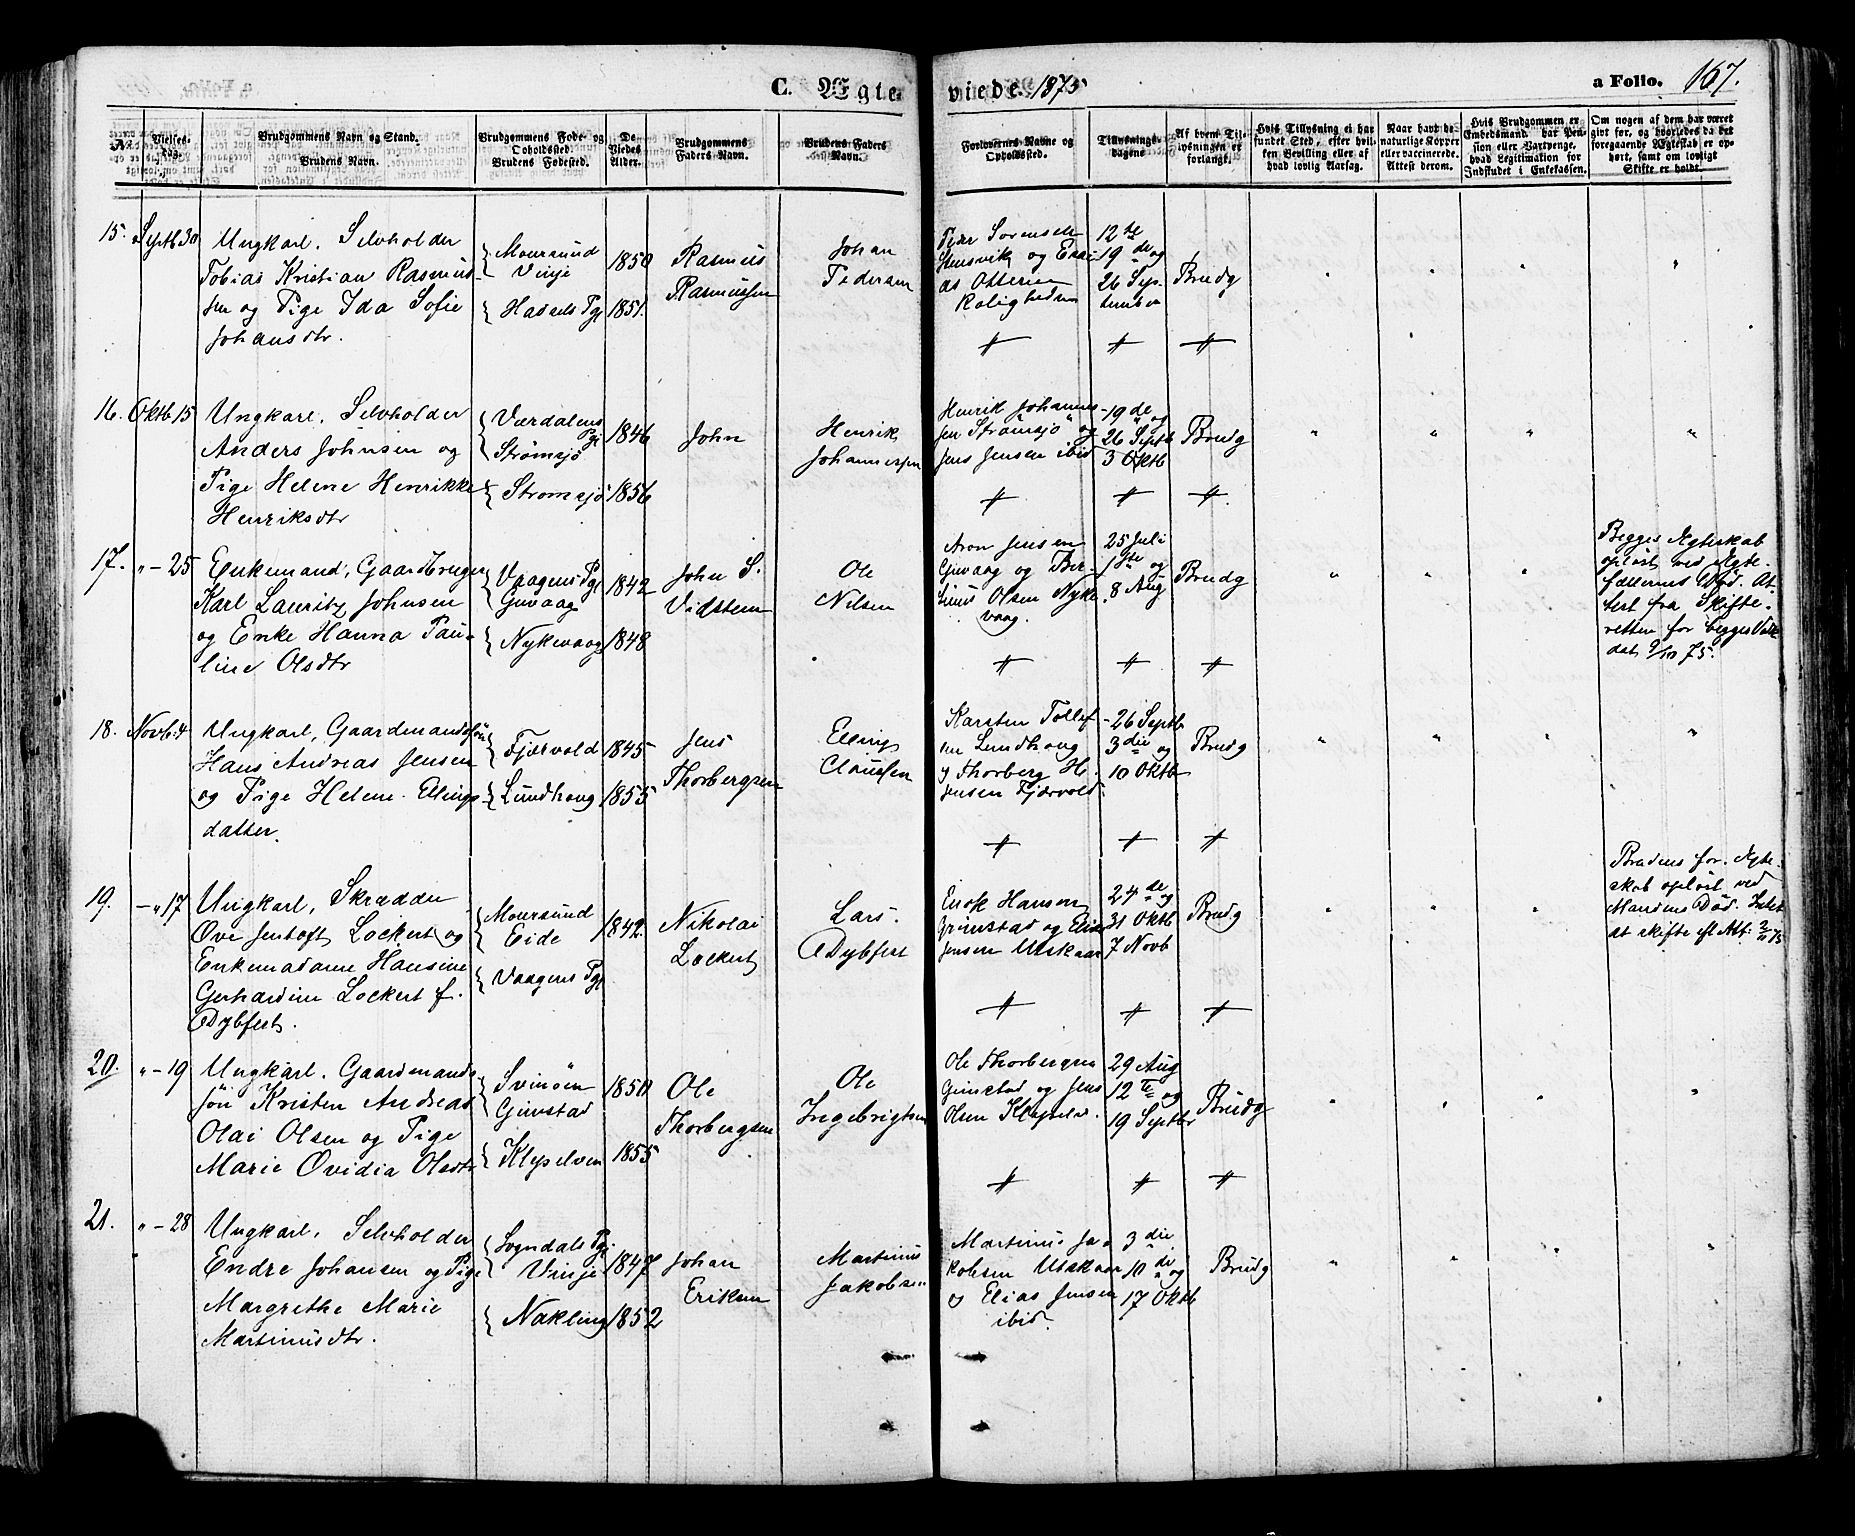 C. Ægteviede. 1875 a Folio. 167.
No.
Vielses-Dag.
Brudgommens Navn og Stand.
Brudens Navn.
Brudgommens Føde- og
Opholdssted.
Brudens Fødested.
De
Viedes
Alder.
Brudgommens
Faders Navn.
Brudens Faders
Navn.
Forlovernes Navne og
Opholdssted.
Tillysnings-
dagene
Af hvem Til-
lysningen er
forlangt.
Hvis Tillysning ei har
fundet Sted, efter hvil-
ken Bevilling eller af
hvad lovlig Aarsag.
Naar havt de
naturlige Kopper
eller vaccinerede.
Attest derom.
Hvis Brudgommen er
Embedsmand, har Pen-
sion eller Vartpenge,
hvad Legitimation for
Indskudet i Enkekassen.
Om nogen af dem har været
givt før, og hvorledes da det
foregaaende Ægteskab er op-
hørt, samt om lovligt
Skifte er holdt.
15. Septb 30
Ungkarl, Selvholder
Tobias Kristian Rasmus-
sen og Pige Ida Sofie
Johansdtr.
Moursund
Vinje
Hadsels Pgj
1850
1851.
Rasmus
Rasmussen
Johan
Pedersen
Peder Sørensen
Stensvik og
as Ottesen
Roligheden
12te
19de og
26 Sep-
tember
Brudg
16. Oktb 15
Ungkarl, Selvholder
Anders Johnsen og
Pige Helene Henrikke
Henriksdtr
Værdalens
Pgj
Strømsjø
Strømsjø
1846
1856
John
Henrik
Johannessen
Henrik Johannes-
sen Strømsjø og
Jens Jensen ibid
19de og
26 Septb
3 Oktb
Brudg
17. " - 25
Enkemand, Gaardbruger
Karl Lauritz Johnsen
og Enke Hanna Pau-
line Olsdtr
Vaagens Pgj
Guvaag
Nykevaag
1842
1848
John S.
Vidstein
Ole
Nilsen
Aron Jensen
Guvaag og Ber-
Olsen Nyke-
vaag.
25 Juli
1ste og
8 Aug
Brudg
Begges Ægteskab
opløst ved Ægte-
fællernes Død. At-
test fra Skifte-
retten for begges Ved
dat 9/10 75.
18. Novb. 4
Ungkarl, Gaardmandssøn
Hans Andreas Jensen
og Pige Helene Ellings-
datter.
Fjærvold
Lundhoug
1845
1855
Jens
Thorbergsen
Elling
Claussen
Karsten Tollef-
sen Lundhoug
og Thorberg H.
Jensen Fjærvold.
26 Septb
3die og
10 Oktb
Brudg
19. - " 17
Ungkarl, Skrædder
Ove Jentoft Lockert og
Enkemadame Hansine
Gerhardine Lockert f.
Dybfest.
Moursund
Eide
Vaagens Pgj
1842.
Nikolai
Lockert
Lars
Dybfest
Erik Hansen
Grimstad og Elias
Jensen Utskaar
24de og
31 Oktb
7 Novb
Brudg
Brudens for. Ægte-
skab opløst ved
Mandens Død. Intet
at skifte efl Att. 2/11 75
20. " - 19
Ungkarl, Gaardmands-
søn Kristen Andreas
Olai Olsen og Pige
Marie Ovidia Olsdtr
Svinøen
Grimstad
Klypelven
1850
1855
Ole
Thorbergsen
Ole
Ingebrigtsen
Ole Thorbergsen
Grimstad og Jens
Olsen
29 Aug
12te og
19 Septbr
Brudg
21. " - 28
Ungkarl, Selvholder
Endre Johansen og Pige
Margrethe Marie
Martinusdtr.
Sogndals Pgj
Vinje
Nakling
1847
1852
Johan
Eriksen
Martinus
Jakobsen
Martinus Ja-
kobsen Utskaar
og Elias Jensen
ibid.
3die
10de og
17 Oktb
Brudg